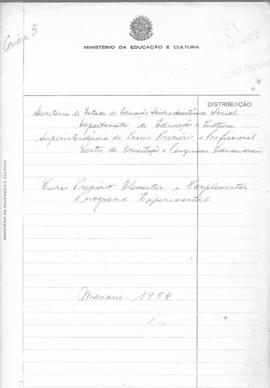 Caixa 3
MINISTÉRIO DA EDUCAÇÃO E CULTURA
DISTRIBUIÇÃO
Secretaria de Estado de Educação Saúde e Assistência Social
Departamento de Educação e Cultura
Superintendência do Ensino Primário e Profissional
Centro de Orientação e Pesquisas Educacionais
Curso Primário Elementar e Complementar
Programa Experimental
Manaus - 1959
MINISTÉRIO DA EDUCAÇÃO E CULTURA